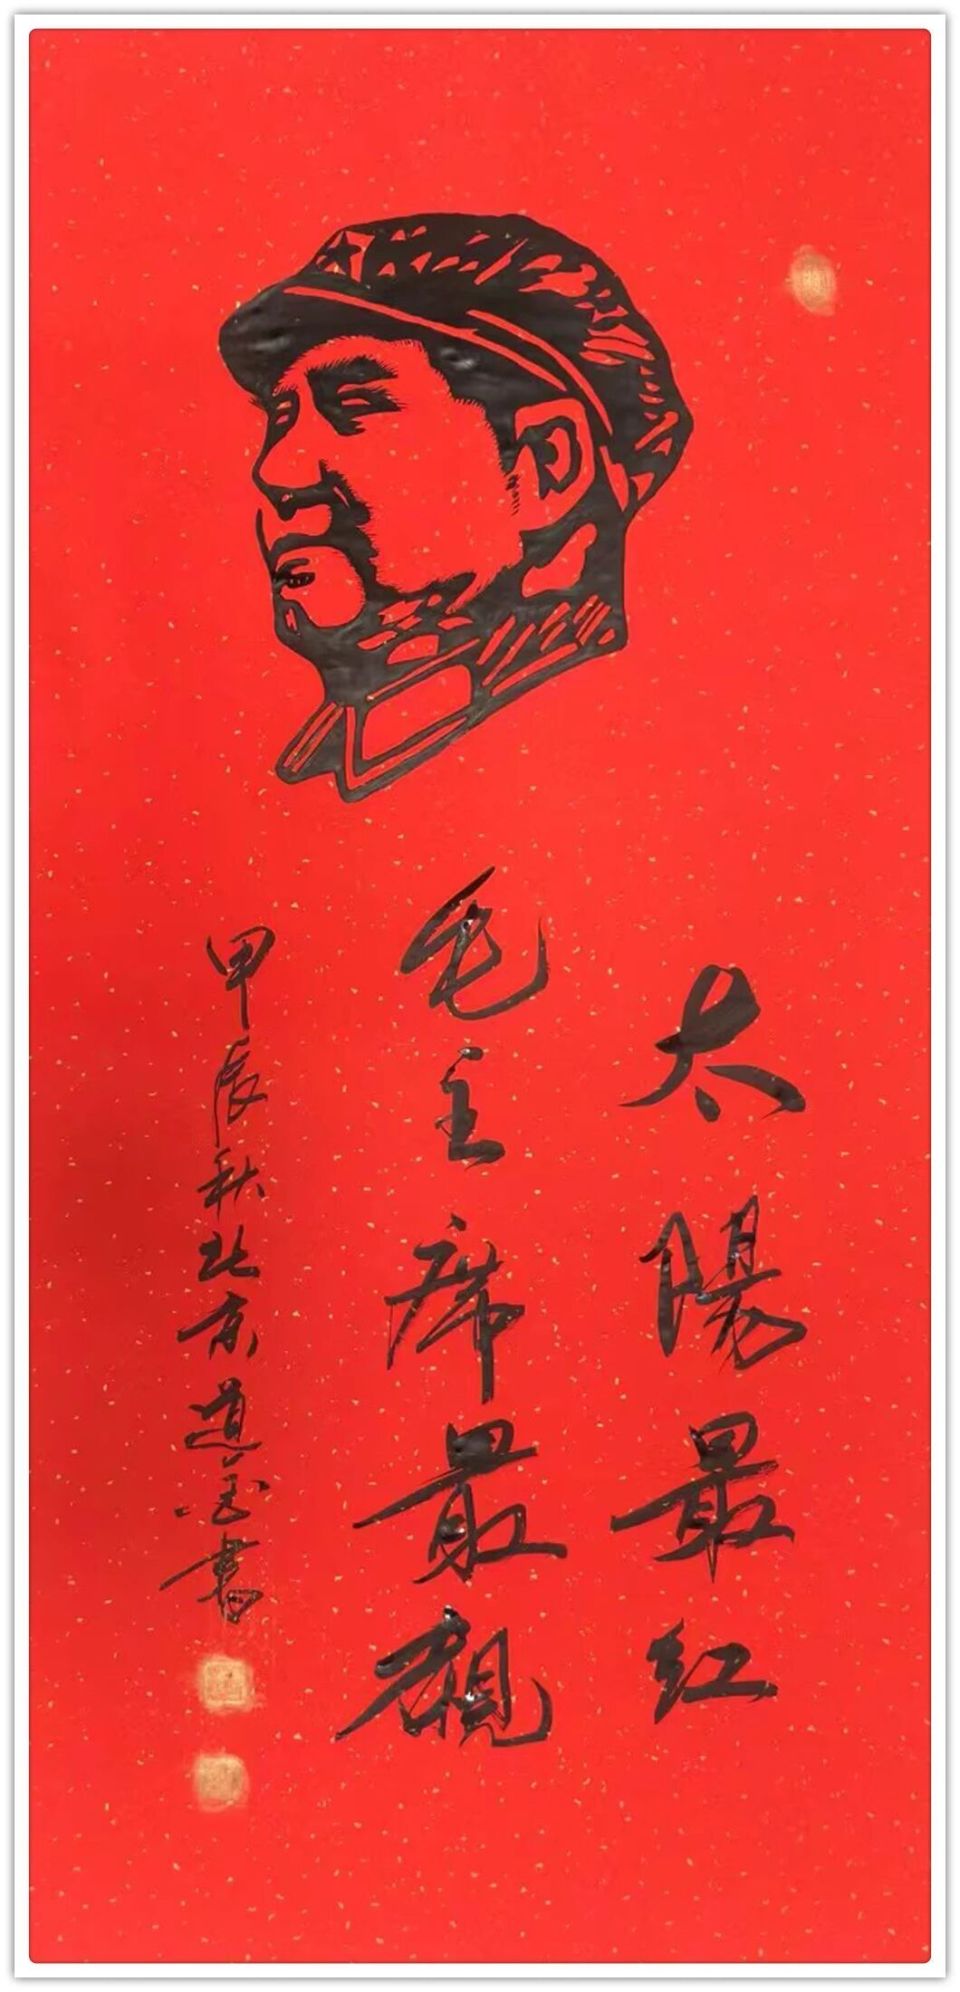 太陽最红
毛主席最親
甲辰秋北京道宝書